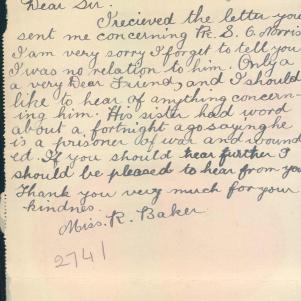 Dear Sir.
I recieved the letter you
sent me concerning Pte. S. C. Norris
I am very sorry I forget to tell you
I was no relation to him. Only a
a very Dear Friend, and I should
like to hear of anything concern-
ing him. His sister had word
about a, fortnight ago saying he
is a prisoner of war and wound
ed. If you should hear further I
should be pleased to hear from you
Thank you very much for your
kindnes.
Miss. R. Baker
2741